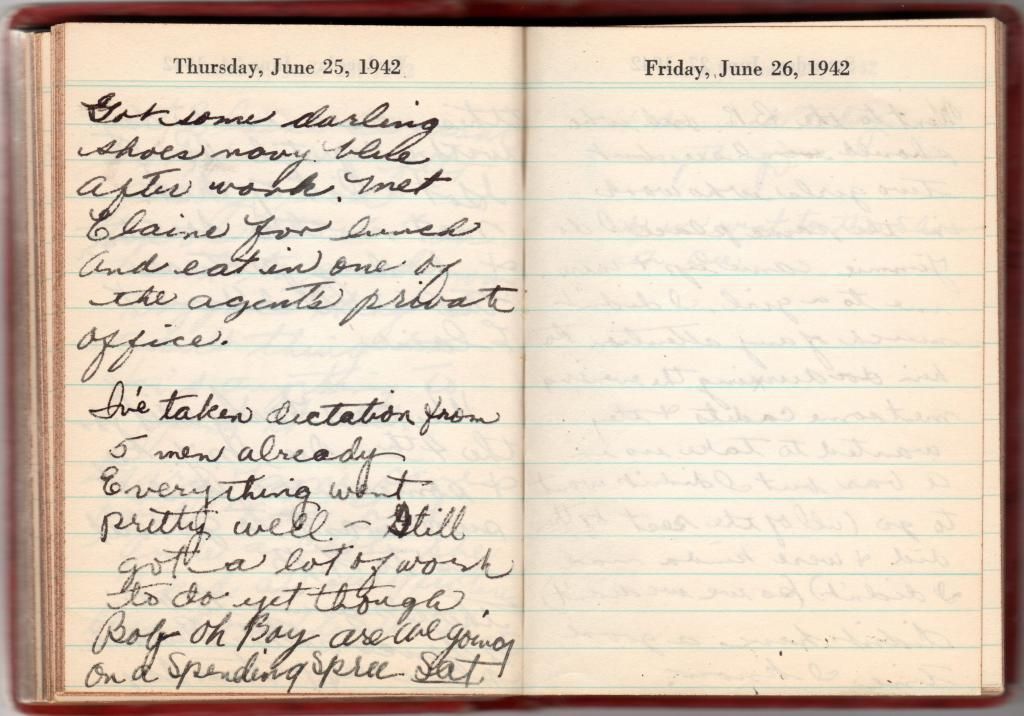 Thursday, June 25, 1942
Got some darling
shoes navy blue
after work. Met
Elaine for lunch
and eat in one of
the agent's private
office.
I've taken dictation from
5 men already
Everything went
pretty well - Still
got a lot of work
to do yet though.
Boy Oh Boy are we going
on a Spending Spree Sat
Friday, June 26, 1942